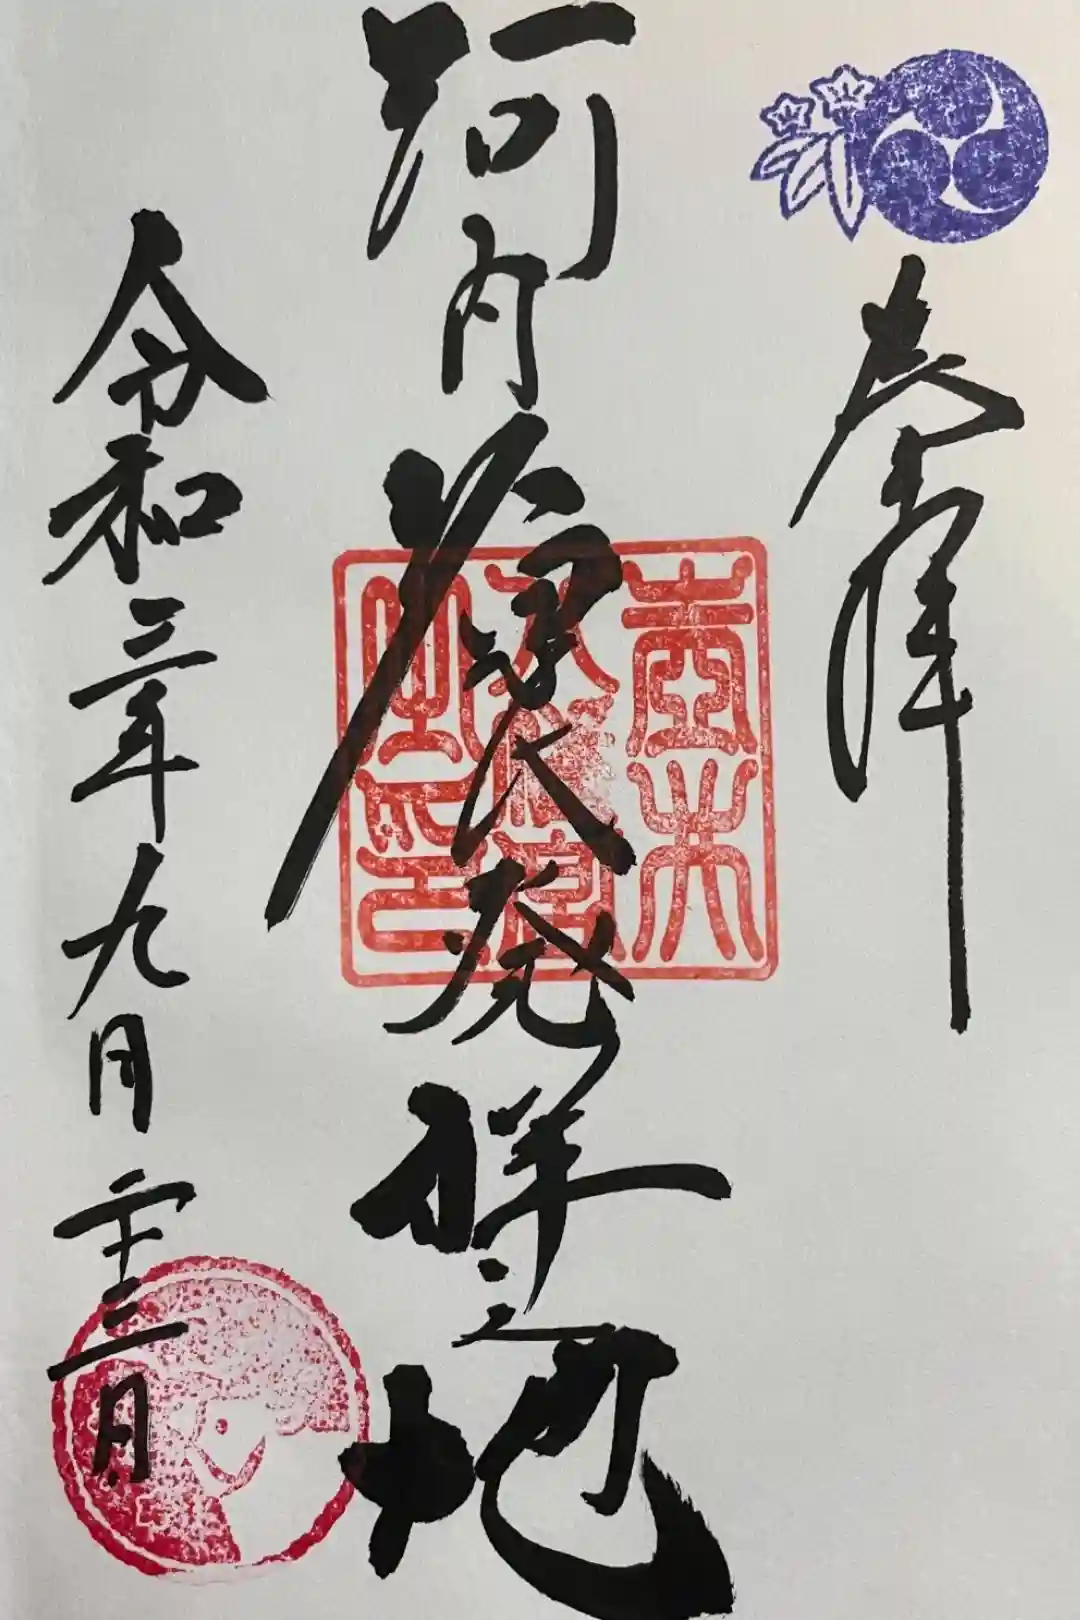 奉拝
河内源氏発祥之地
壺井
八幡宮
之印
令和三年九月二十三日